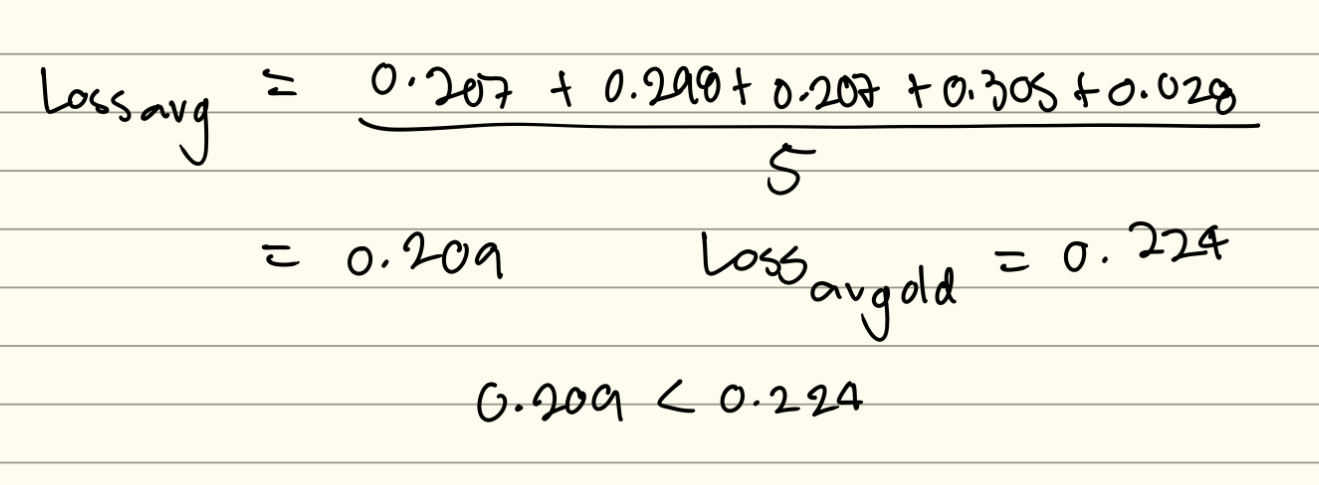 Loss avg = 0.207 + 0.298 + 0.207 + 0.305 + 0.028
5
= 0.209 Loss avg old = 0.224
0.209 < 0.224